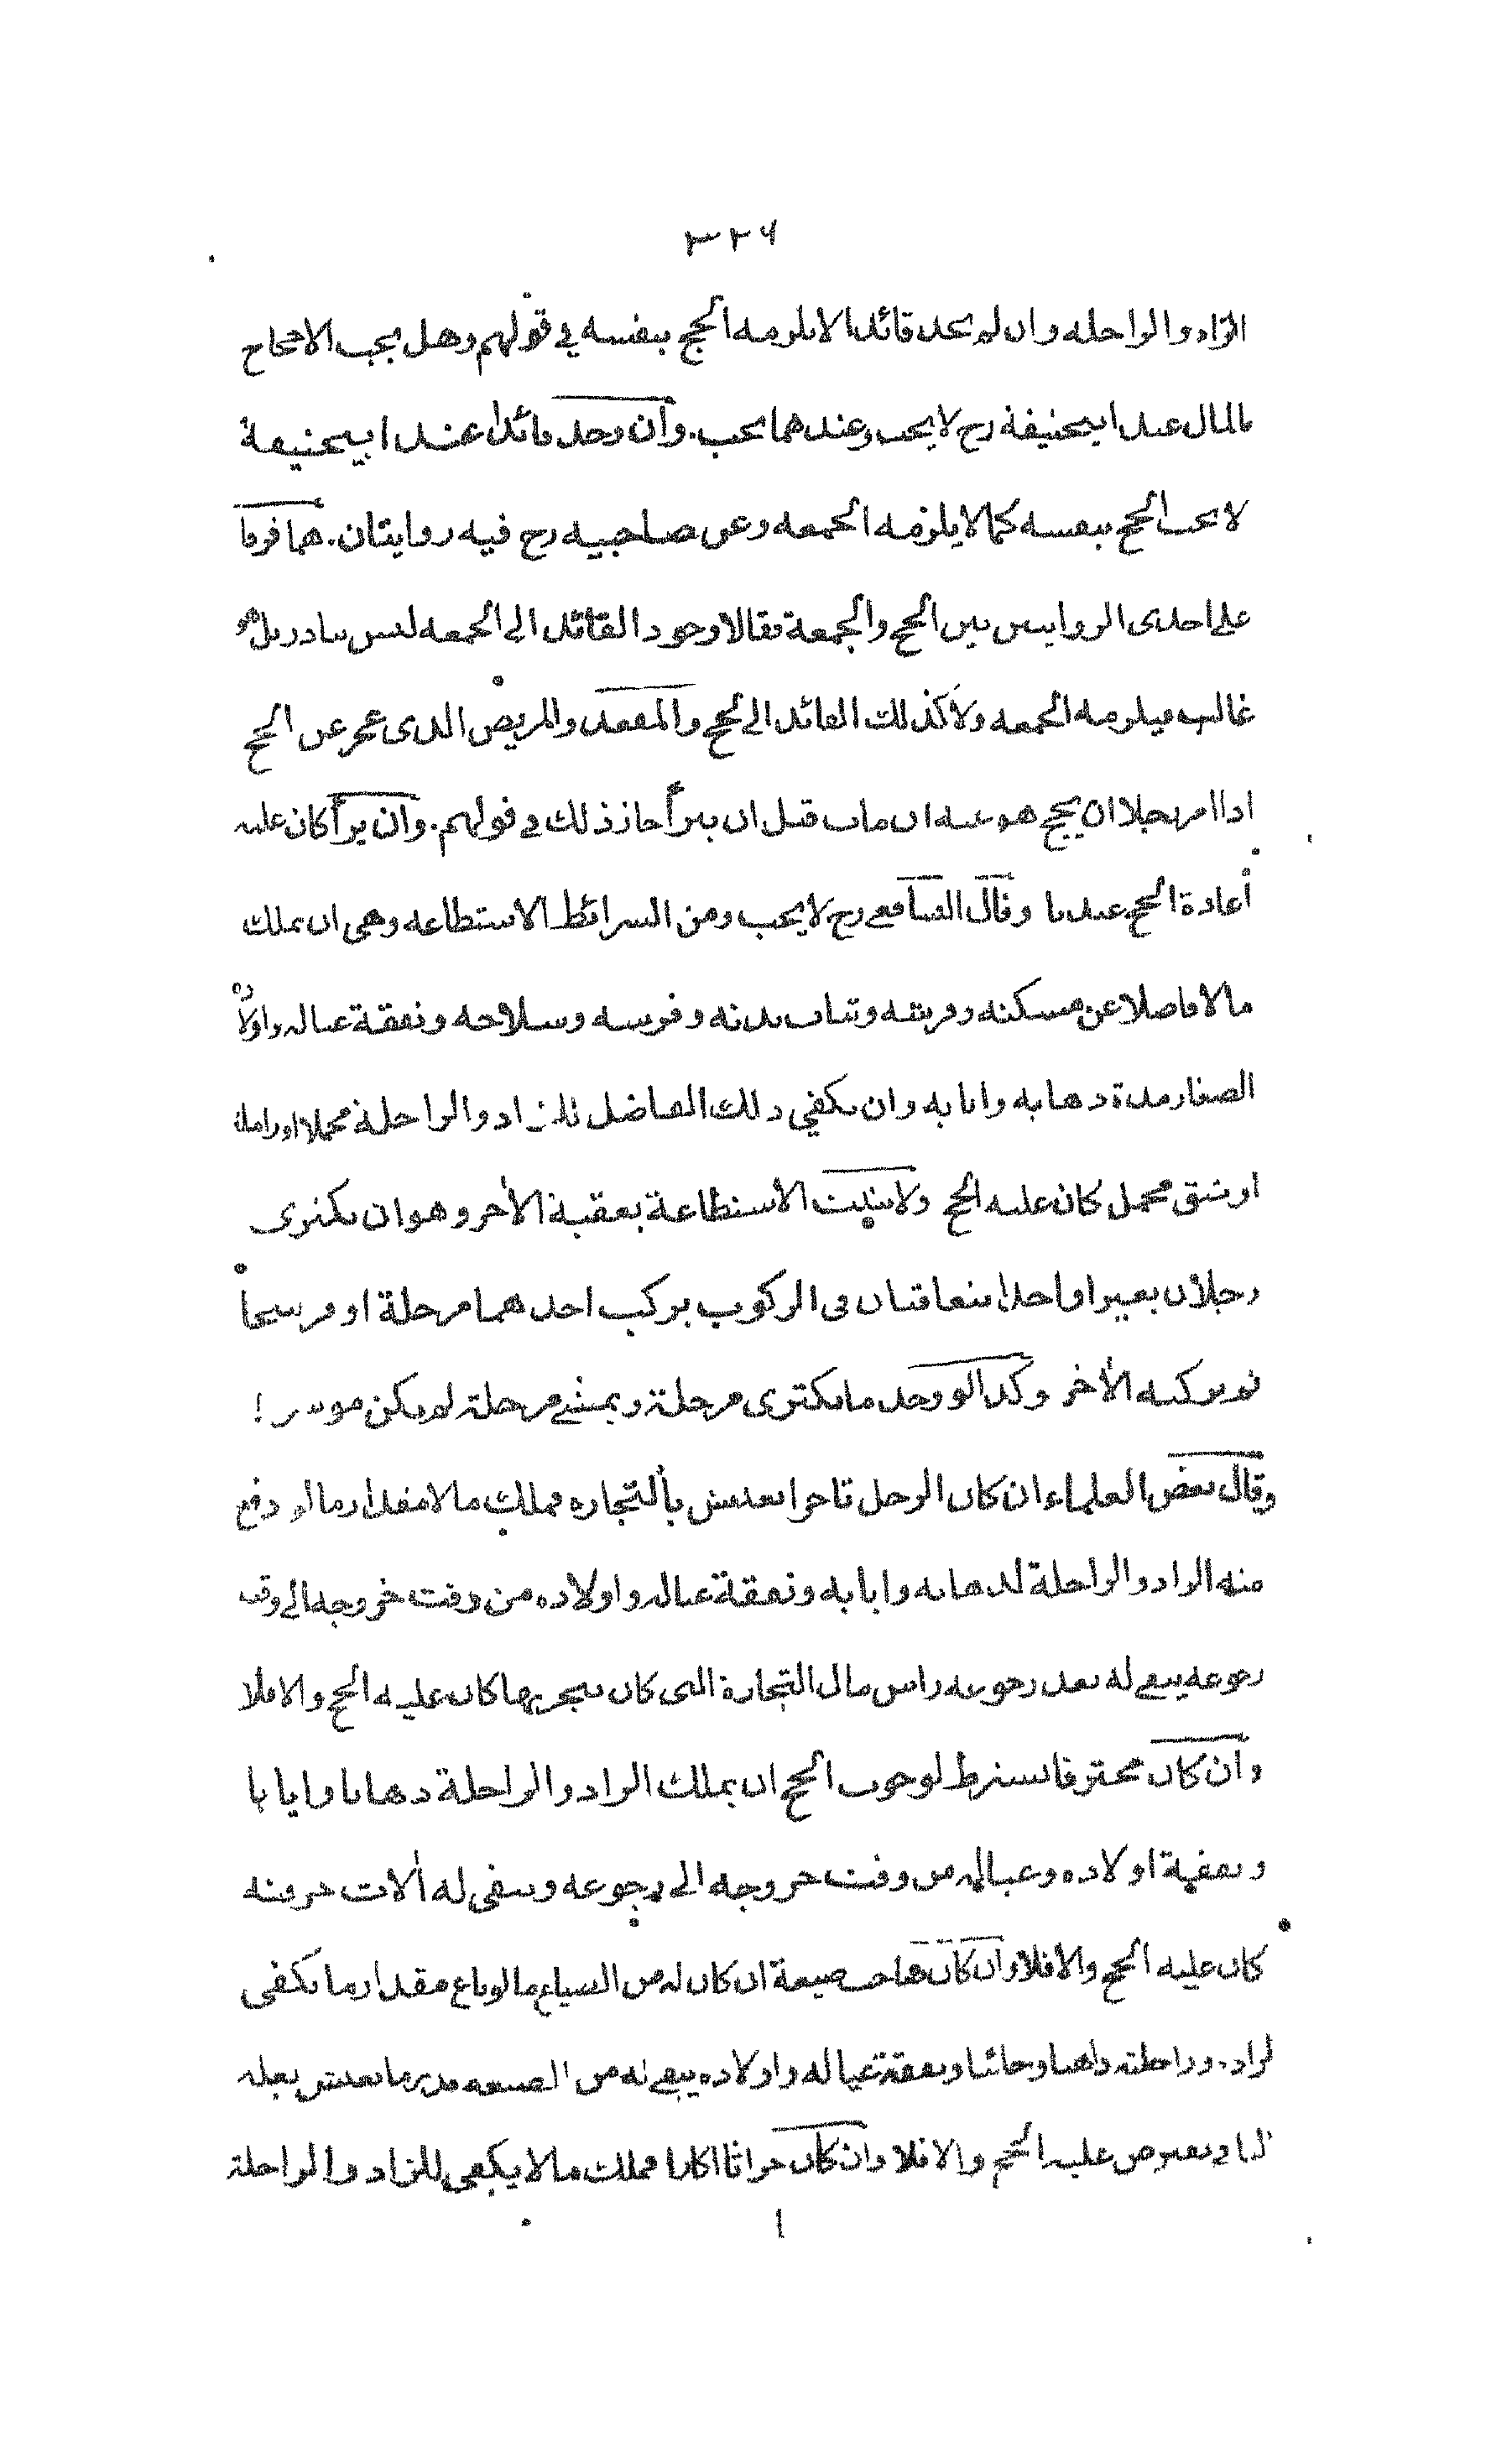 ٣٢٦
الزاد والراحلة وان لم يجد قائدا لا يلزمه الحج بنفسه في قولهم وهل يجب الاحجاج
بالمال عند ابيحنيفة رح لا يجب وعندهما يجب. وان وجد قائدا عند ابيحنيفة
لا يجب الحج بنفسه كما لا يلزمه الجمعه وعن صاحبيه رح فيه روايتان. هما فرقا
على احدى الروايتين بين الحج والجمعة فقالا وجود القائد الى الجمعه ليس بنادر بل هو
غالب فيلزمه الجمعه ولا كذلك القائد الى الحج والمقعد والمريض الذى عجز عن الحج
اذا امر رجلا ان يحج هو عنه ان مات قبل ان يبرأ جاز ذلك في قولهم. وان برأ كان عليه
أعادة الحج عندنا وقال الشافعي رح لا يجب ومن الشرائط الاستطاعه وهى ان يملك
مالا فاضلا عن مسكنه وفرشه وثياب بدنه وفرسه وسلاحه ونفقة عياله واولاده
الصغار مدة ذهابه وايابه وان يكفي ذلك الفاضل للزاد والراحلة محملا او زاملة
او شق محمل كان عليه الحج ولا يثبت الاستطاعة بعقبة الأخر وهو ان يكترى
رجلان بعيرا واحدا يتعاقبان فى الركوب يركب احدهما مرحلة او فرسخا
ثم يركبه الأخر وكذا لو وجد ما يكترى مرحلة ويمشي مرحلة لم يكن موسرا
وقال بعض العلماء ان كان الرجل تاجرا يعيش بألتجاره فملك مالا مقدار ما لو دفع
منه الزاد والراحلة لذهابه وايابه ونفقة عياله واولاده من وقت خروجه الي وقت
رجوعه يبقي له بعد رجوعه راس مال التجارة التى كان يتجر بها كان عليه الحج والا فلا
وان كان محترفا يشترط لوجوب الحج ان يملك الزاد والراحلة ذهابا وايابا
ونفقة اولاده وعياله من وقت خروجه الى رجوعه ويبقى له ألات حرفته
كان عليه الحج والا فلا وان كان صاحب ضيعة ان كان له من الضياع ما لو باع مقدار ما يكفى
لزاده وراحلته ذاهبا وجائيا ونفقة عياله واولاده يبقي له من الضيعه قدر ما يعيش بغلة
الباقي يفترض عليه الحج والا فلا وان كان حراثا اكارا فملك مالا يكفى للزاد والراحلة